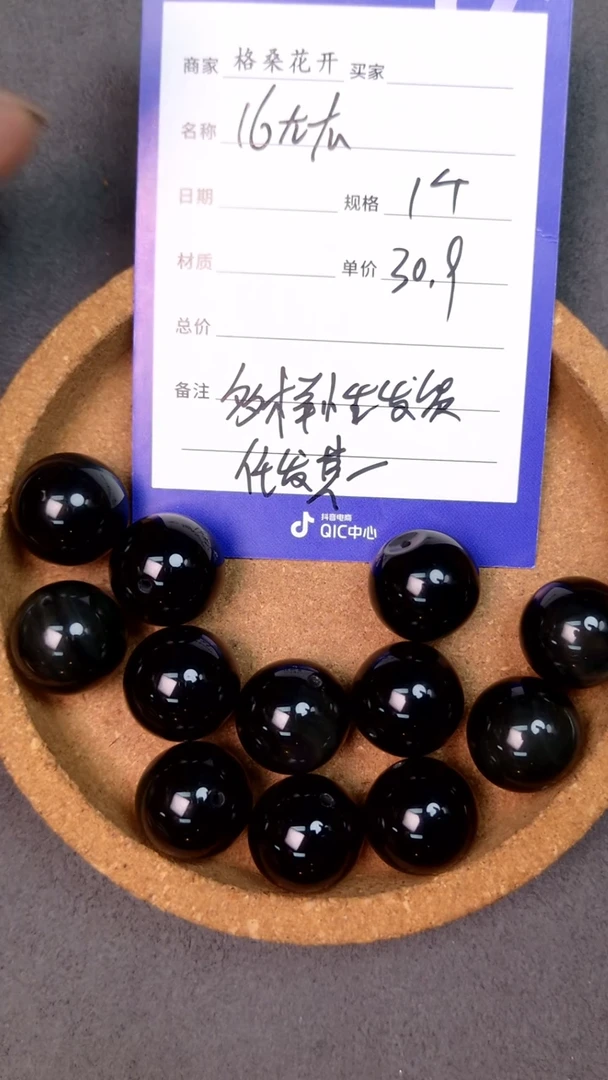 商家 格桑花开 买家
名称 16
日期 规格 14
材质 单价 30.9
总价
备注 多样性发货
任发其一
抖音电商
QIC中心